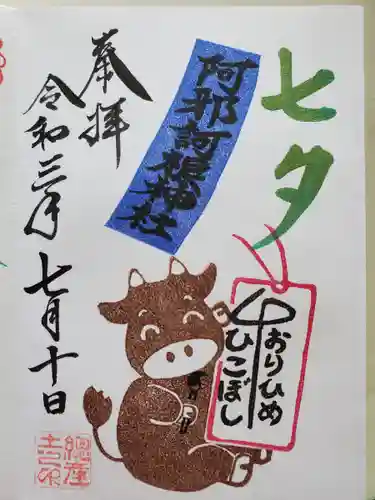 七夕
阿邪訶根神社
奉拝
令和三年
七月十日
おりひめ
ひこぼし